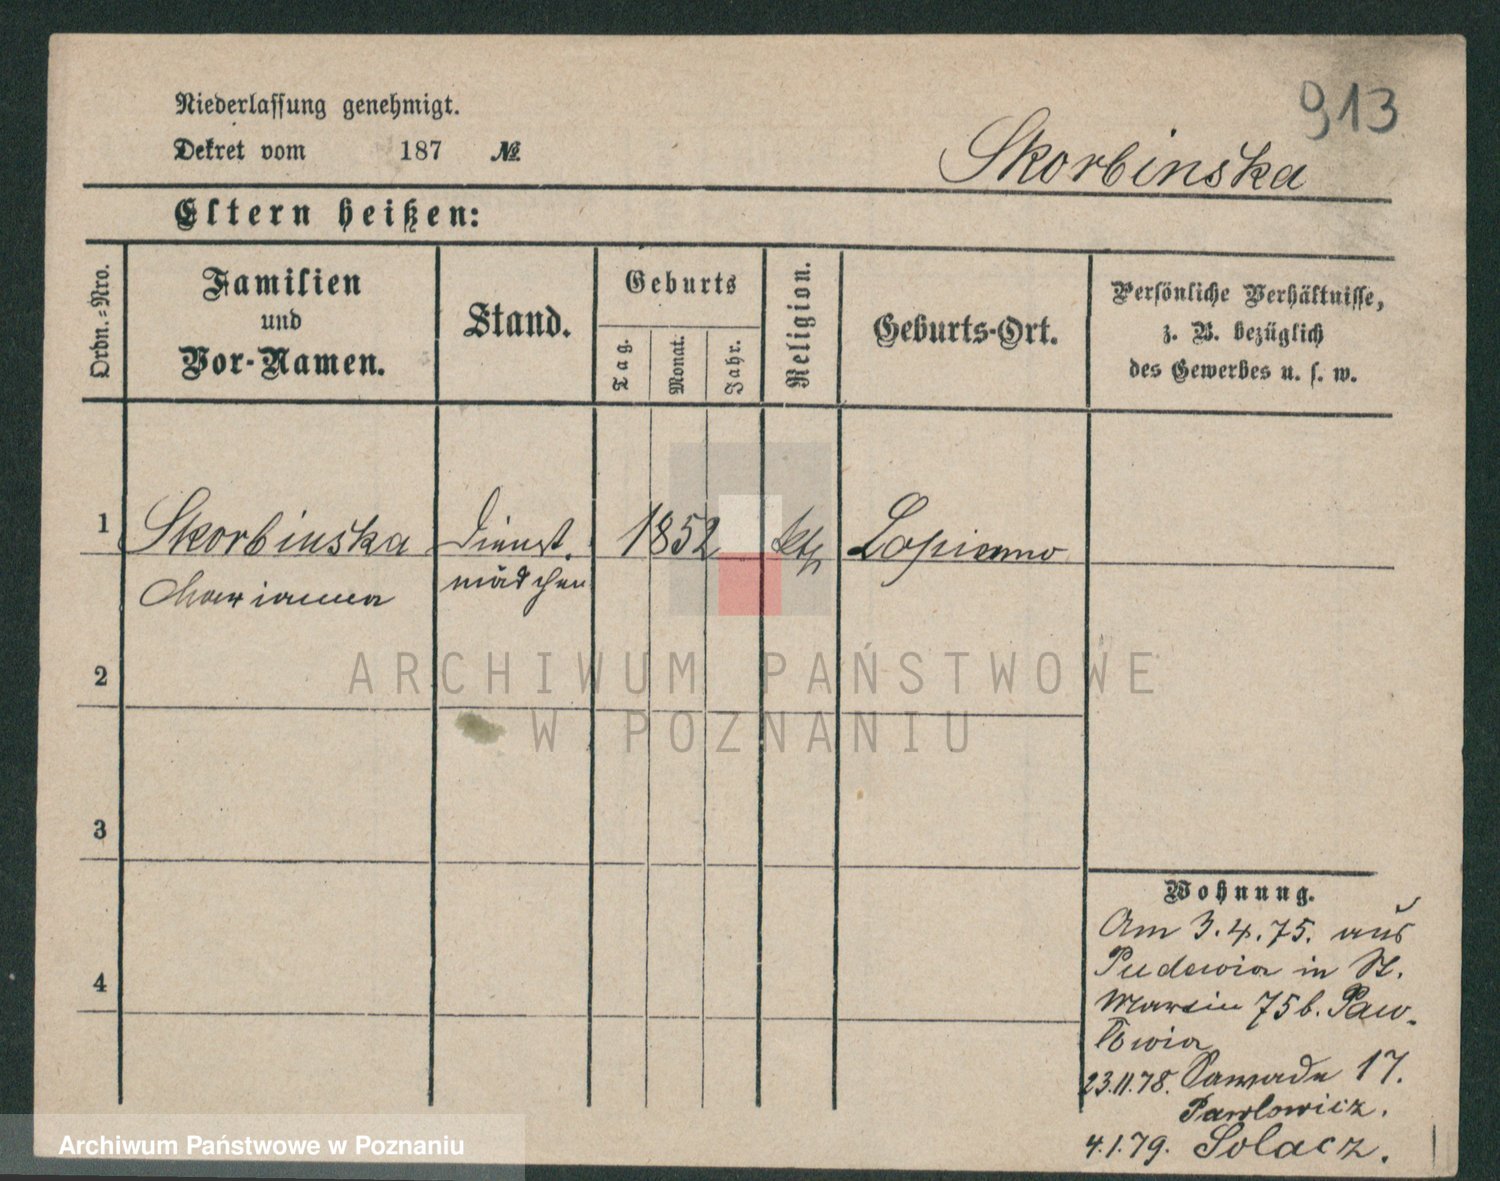 913
Niederlassung genehmigt.
Dekret vom 187 №
Skorbinska
Eltern heißen:
Ordn.=Nro.
Familien
und
Vor-Namen.
Stand.
Geburts
Tag.
Monat.
Jahr.
Religion.
Geburts-Ort.
Persönliche Verhältnisse,
z. B. bezüglich
des Gewerbes u. s. w.
1 Skorbinska Dienst. 1852 kth Lopienno
Marianna mädchen
2
ARCHIWUM PAŃSTWOWE
W POZNANIU
3
Wohnung.
Am 3.4.75. aus
Pudewia in St.
4
Martin 75 b. Paw-
lowia
23.11.78. Zawade 17.
Pawlowicz.
4.1.79. Solacz.
Archiwum Państwowe w Poznaniu